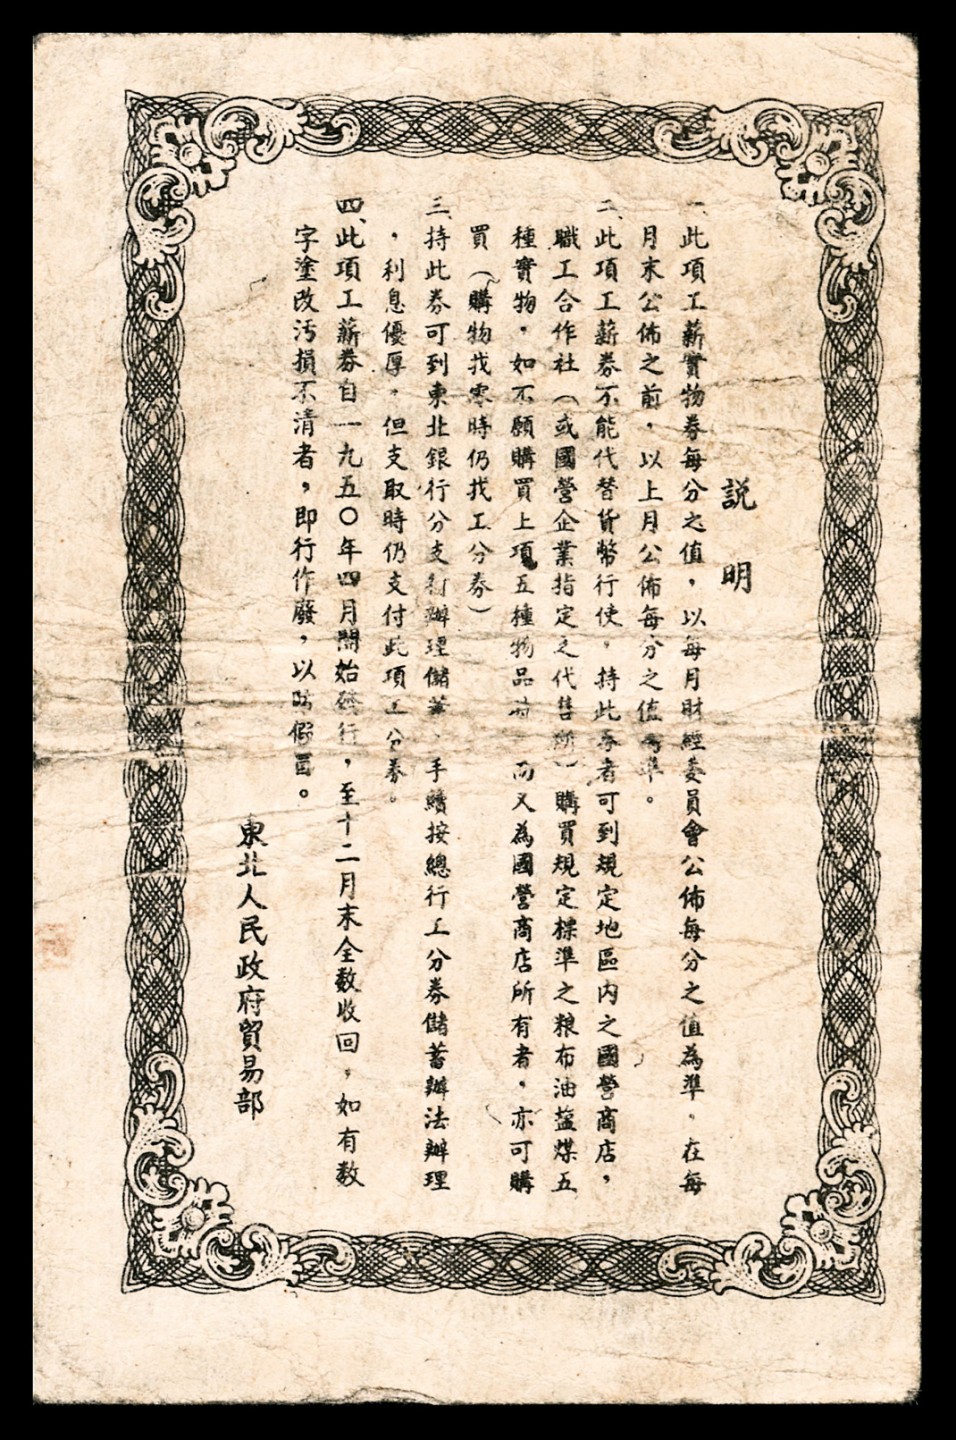 說明
一、此項工薪實物券每分之值，以每月財經委員會公佈每分之值為準。在每
月末公佈之前，以上月公佈每分之值為準。
二、此項工薪券不能代替貨幣行使。持此券者可到規定地區內之國營商店，
職工合作社（或國營企業指定之代售所）購買規定標準之粮布油盐煤五
種實物。如不願購買上項五種物品時 而又為國營商店所有者。亦可購
買（購物找零時仍找工分券）
三、持此券可到東北銀行分支行辦理儲蓄、手續按總行工分券儲蓄辦法辦理
，利息優厚。但支取時仍支付此項工分券。
四、此項工薪券自一九五〇年四月開始發行，至十二月末全数收回，如有数
字塗改污損不清者，即行作廢，以防假冒。
東北人民政府貿易部